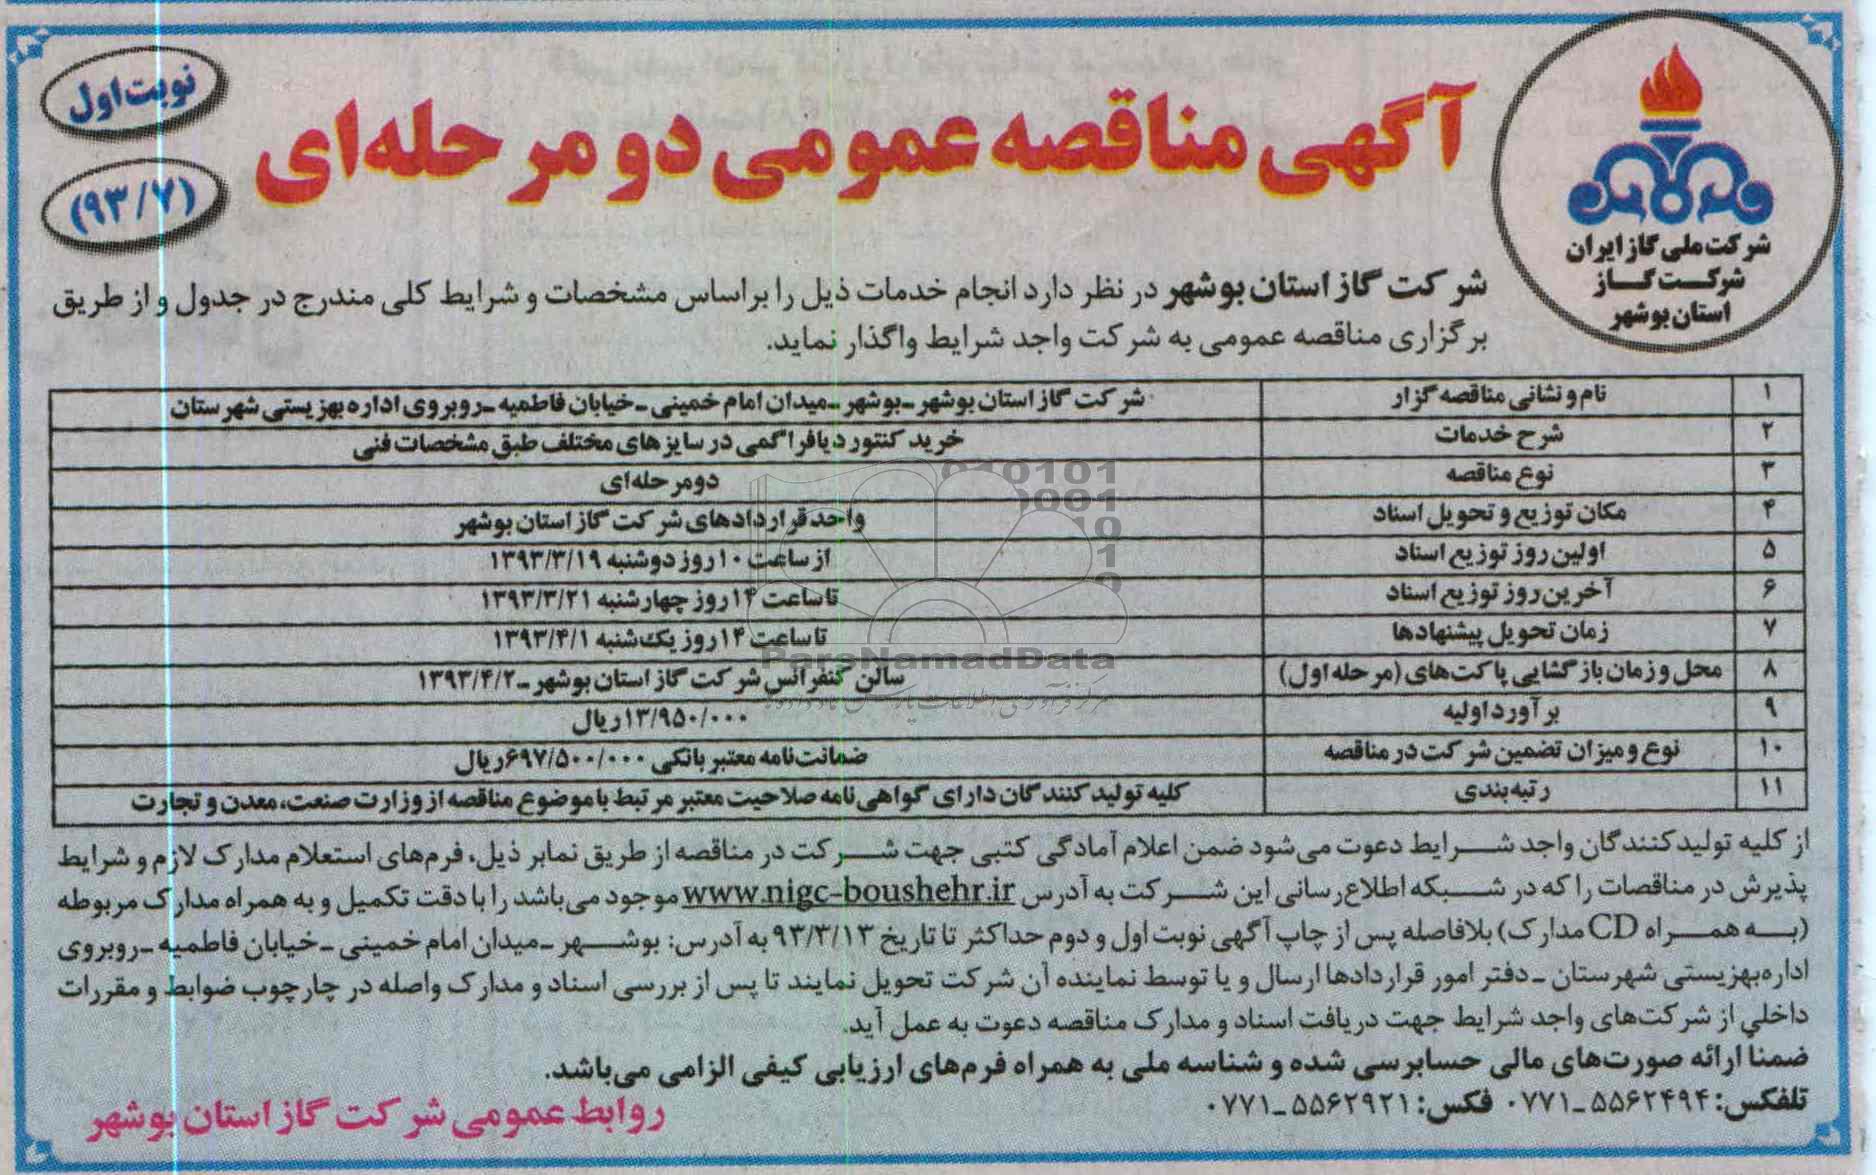 نوبت اول
(۹۳/۷)
آگهی مناقصه عمومی دو مرحله‌ای
شرکت ملی گاز ایران
شرکت گاز
استان بوشهر
شرکت گاز استان بوشهر در نظر دارد انجام خدمات ذیل را براساس مشخصات و شرایط کلی مندرج در جدول و از طریق
برگزاری مناقصه عمومی به شرکت واجد شرایط واگذار نماید.
۱ نام و نشانی مناقصه گزار شرکت گاز استان بوشهر ـ بوشهر ـ میدان امام خمینی ـ خیابان فاطمیه ـ روبروی اداره بهزیستی شهرستان
۲ شرح خدمات خرید کنتور دیافراگمی در سایزهای مختلف طبق مشخصات فنی
۳ نوع مناقصه دومرحله‌ای
۴ مکان توزیع و تحویل اسناد واحد قراردادهای شرکت گاز استان بوشهر
۵ اولین روز توزیع اسناد از ساعت ۱۰ روز دوشنبه ۱۳۹۳/۳/۱۹
۶ آخرین روز توزیع اسناد تا ساعت ۱۴ روز چهارشنبه ۱۳۹۳/۳/۲۱
۷ زمان تحویل پیشنهادها تا ساعت ۱۴ روز یک‌شنبه ۱۳۹۳/۴/۱
۸ محل و زمان بازگشایی پاکت‌های (مرحله اول) سالن کنفرانس شرکت گاز استان بوشهر ـ ۱۳۹۳/۴/۲
۹ برآورد اولیه ۱۳/۹۵۰/۰۰۰ ریال
۱۰ نوع و میزان تضمین شرکت در مناقصه ضمانت‌نامه معتبر بانکی ۶۹۷/۵۰۰/۰۰۰ ریال
۱۱ رتبه‌بندی کلیه تولیدکنندگان دارای گواهی‌نامه صلاحیت معتبر مرتبط با موضوع مناقصه از وزارت صنعت، معدن و تجارت
از کلیه تولیدکنندگان واجد شرایط دعوت می‌شود ضمن اعلام آمادگی کتبی جهت شرکت در مناقصه از طریق نمابر ذیل، فرم‌های استعلام مدارک لازم و شرایط
پذیرش در مناقصات را که در شبکه اطلاع‌رسانی این شرکت به آدرس www.nigc-boushehr.ir موجود می‌باشد را با دقت تکمیل و به همراه مدارک مربوطه
(به همراه CD مدارک) بلافاصله پس از چاپ آگهی نوبت اول و دوم حداکثر تا تاریخ ۹۳/۳/۱۳ به آدرس: بوشهر ـ میدان امام خمینی ـ خیابان فاطمیه ـ روبروی
اداره‌بهزیستی شهرستان ـ دفتر امور قراردادها ارسال و یا توسط نماینده آن شرکت تحویل نمایند تا پس از بررسی اسناد و مدارک واصله در چارچوب ضوابط و مقررات
داخلی از شرکت‌های واجد شرایط جهت دریافت اسناد و مدارک مناقصه دعوت به عمل آید.
ضمناً ارائه صورت‌های مالی حسابرسی شده و شناسه ملی به همراه فرم‌های ارزیابی کیفی الزامی می‌باشد.
تلفکس: ۵۵۶۲۴۹۴ـ۰۷۷۱ فکس: ۵۵۶۲۹۲۱ـ۰۷۷۱
روابط عمومی شرکت گاز استان بوشهر
ParsNamadData